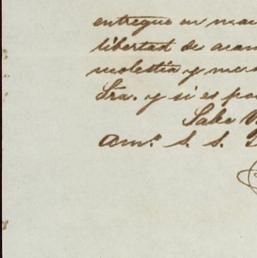 entregue en
libertad de
molestia y
Sra. y si es
Sabe
am.º S. S.